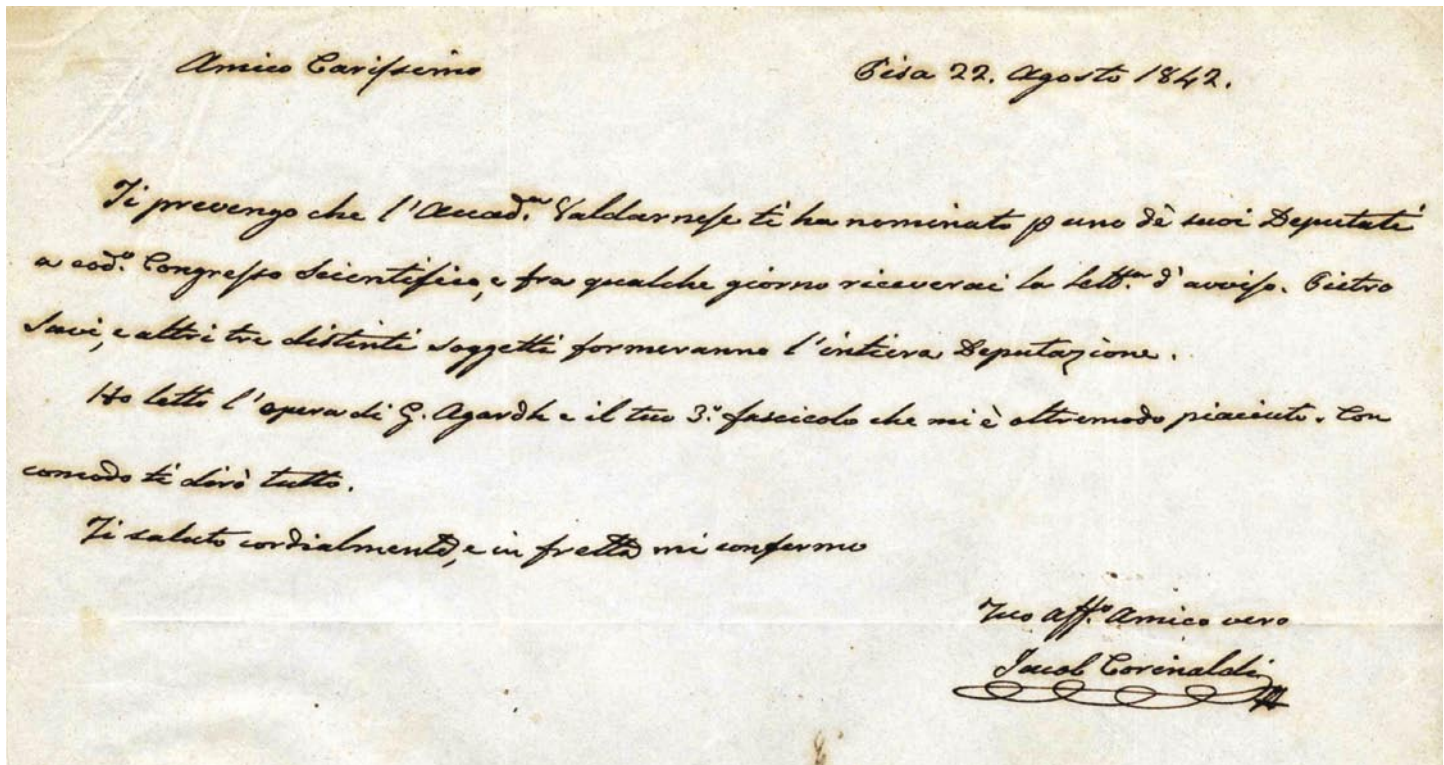 Amico Carissimo Pisa 22. Agosto 1842.
Ti prevengo che l'Accad.ª Valdarnese ti ha nominato p uno dè suoi Deputati
a cod.º Congresso Scientifico, e fra qualche giorno riceverai la lett.ª d'avviso. Pietro
Savi, e altri tre distinti soggetti formeranno l'intiera Deputazione.
Ho letto l'opera di G. Agardh e il tuo 3.º fascicolo che mi è oltremodo piaciuto. Con
comodo ti dirò tutto.
Ti saluto cordialmente, e in fretta mi confermo
Tuo Aff.º Amico vero
Jacob Corinaldi